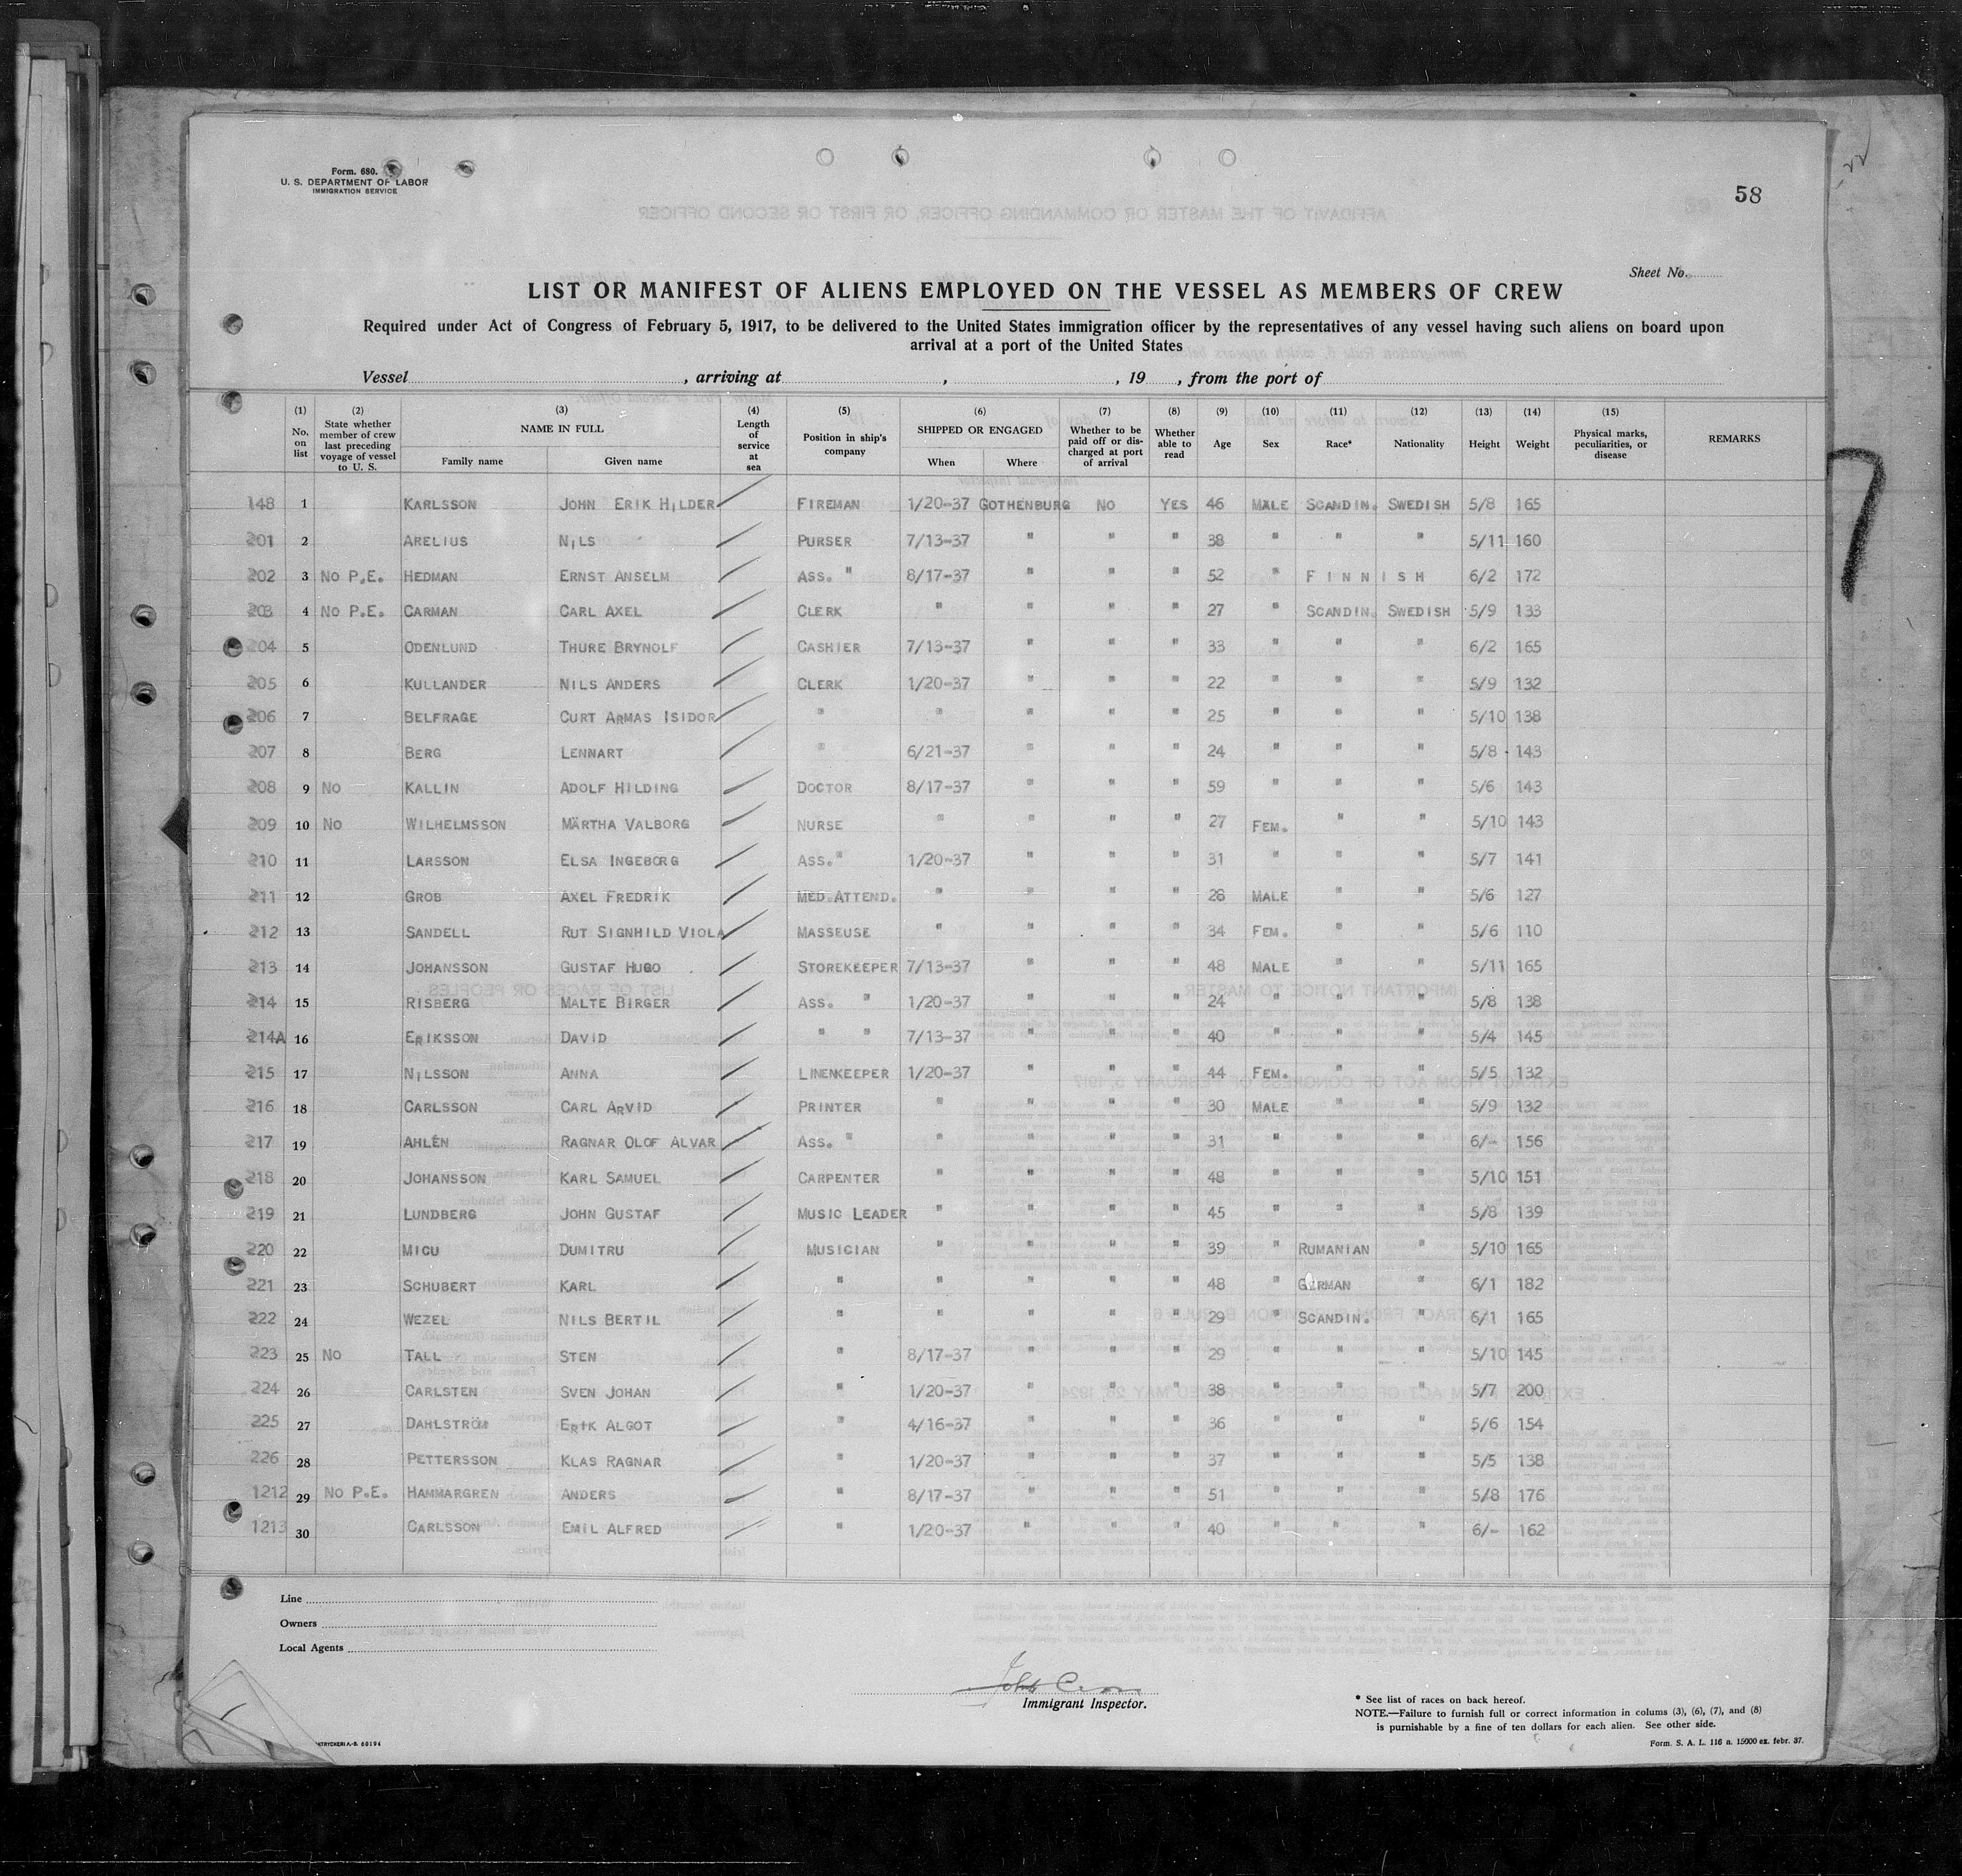 Form. 680.
U. S. DEPARTMENT OF LABOR
IMMIGRATION SERVICE
58
Sheet No.
LIST OR MANIFEST OF ALIENS EMPLOYED ON THE VESSEL AS MEMBERS OF CREW
Required under Act of Congress of February 5, 1917, to be delivered to the United States immigration officer by the representatives of any vessel having such aliens on board upon
arrival at a port of the United States
Vessel , arriving at , , 19 , from the port of
(1) No. on list (2) State whether member of crew last preceding voyage of vessel to U. S. (3) NAME IN FULL Family name Given name (4) Length of service at sea (5) Position in ship's company (6) SHIPPED OR ENGAGED When Where (7) Whether to be paid off or dis-charged at port of arrival (8) Whether able to read (9) Age (10) Sex (11) Race* (12) Nationality (13) Height (14) Weight (15) Physical marks, peculiarities, or disease REMARKS
148 1 KARLSSON JOHN ERIK HILDER FIREMAN 1/20-37 GOTHENBURG NO YES 46 MALE SCANDIN. SWEDISH 5/8 165
201 2 ARELIUS NILS PURSER 7/13-37 " " " 38 " " " 5/11 160
202 3 NO P.E. HEDMAN ERNST ANSELM ASS. " 8/17-37 " " " 52 " FINNISH 6/2 172
203 4 NO P.E. CARMAN CARL AXEL CLERK " " " " 27 " SCANDIN. SWEDISH 5/9 133
204 5 ODENLUND THURE BRYNOLF CASHIER 7/13-37 " " " 33 " " " 6/2 165
205 6 KULLANDER NILS ANDERS CLERK 1/20-37 " " " 22 " " " 5/9 132
206 7 BELFRAGE CURT ARMAS ISIDOR " " " " " 25 " " " 5/10 138
207 8 BERG LENNART " 6/21-37 " " " 24 " " " 5/8 143
208 9 NO KALLIN ADOLF HILDING DOCTOR 8/17-37 " " " 59 " " " 5/6 143
209 10 NO WILHELMSSON MÄRTHA VALBORG NURSE " " " " 27 FEM. " " 5/10 143
210 11 LARSSON ELSA INGEBORG ASS. " 1/20-37 " " " 31 " " " 5/7 141
211 12 GROB AXEL FREDRIK MED.ATTEND. " " " " 28 MALE " " 5/6 127
212 13 SANDELL RUT SIGNHILD VIOLA MASSEUSE " " " " 34 FEM. " " 5/6 110
213 14 JOHANSSON GUSTAF HUGO STOREKEEPER 7/13-37 " " " 48 MALE " " 5/11 165
214 15 RISBERG MALTE BIRGER ASS. " 1/20-37 " " " 24 " " " 5/8 138
214A 16 ERIKSSON DAVID " " 7/13-37 " " " 40 " " " 5/4 145
215 17 NILSSON ANNA LINENKEEPER 1/20-37 " " " 44 FEM. " " 5/5 132
216 18 CARLSSON CARL ARVID PRINTER " " " " 30 MALE " " 5/9 132
217 19 AHLÉN RAGNAR OLOF ALVAR ASS. " " " " " 31 " " " 6/- 156
218 20 JOHANSSON KARL SAMUEL CARPENTER " " " " 48 " " " 5/10 151
219 21 LUNDBERG JOHN GUSTAF MUSIC LEADER " " " " 45 " " " 5/8 139
220 22 MICU DUMITRU MUSICIAN " " " " 39 " RUMANIAN " 5/10 165
221 23 SCHUBERT KARL " " " " " 48 " GERMAN " 6/1 182
222 24 WEZEL NILS BERTIL " " " " " 29 " SCANDIN. " 6/1 165
223 25 NO TALL STEN " 8/17-37 " " " 29 " " " 5/10 145
224 26 CARLSTEN SVEN JOHAN " 1/20-37 " " " 38 " " " 5/7 200
225 27 DAHLSTRÖM ERIK ALGOT " 4/16-37 " " " 36 " " " 5/6 154
226 28 PETTERSSON KLAS RAGNAR " 1/20-37 " " " 37 " " " 5/5 138
1212 29 NO P.E. HAMMARGREN ANDERS " 8/17-37 " " " 51 " " " 5/8 176
1213 30 CARLSSON EMIL ALFRED " 1/20-37 " " " 40 " " " 6/- 162
Line
Owners
Local Agents
Immigrant Inspector.
* See list of races on back hereof.
NOTE.—Failure to furnish full or correct information in colums (3), (6), (7), and (8)
is punishable by a fine of ten dollars for each alien. See other side.
Form. S. A. L. 116 a. 15000 ex. febr. 37.